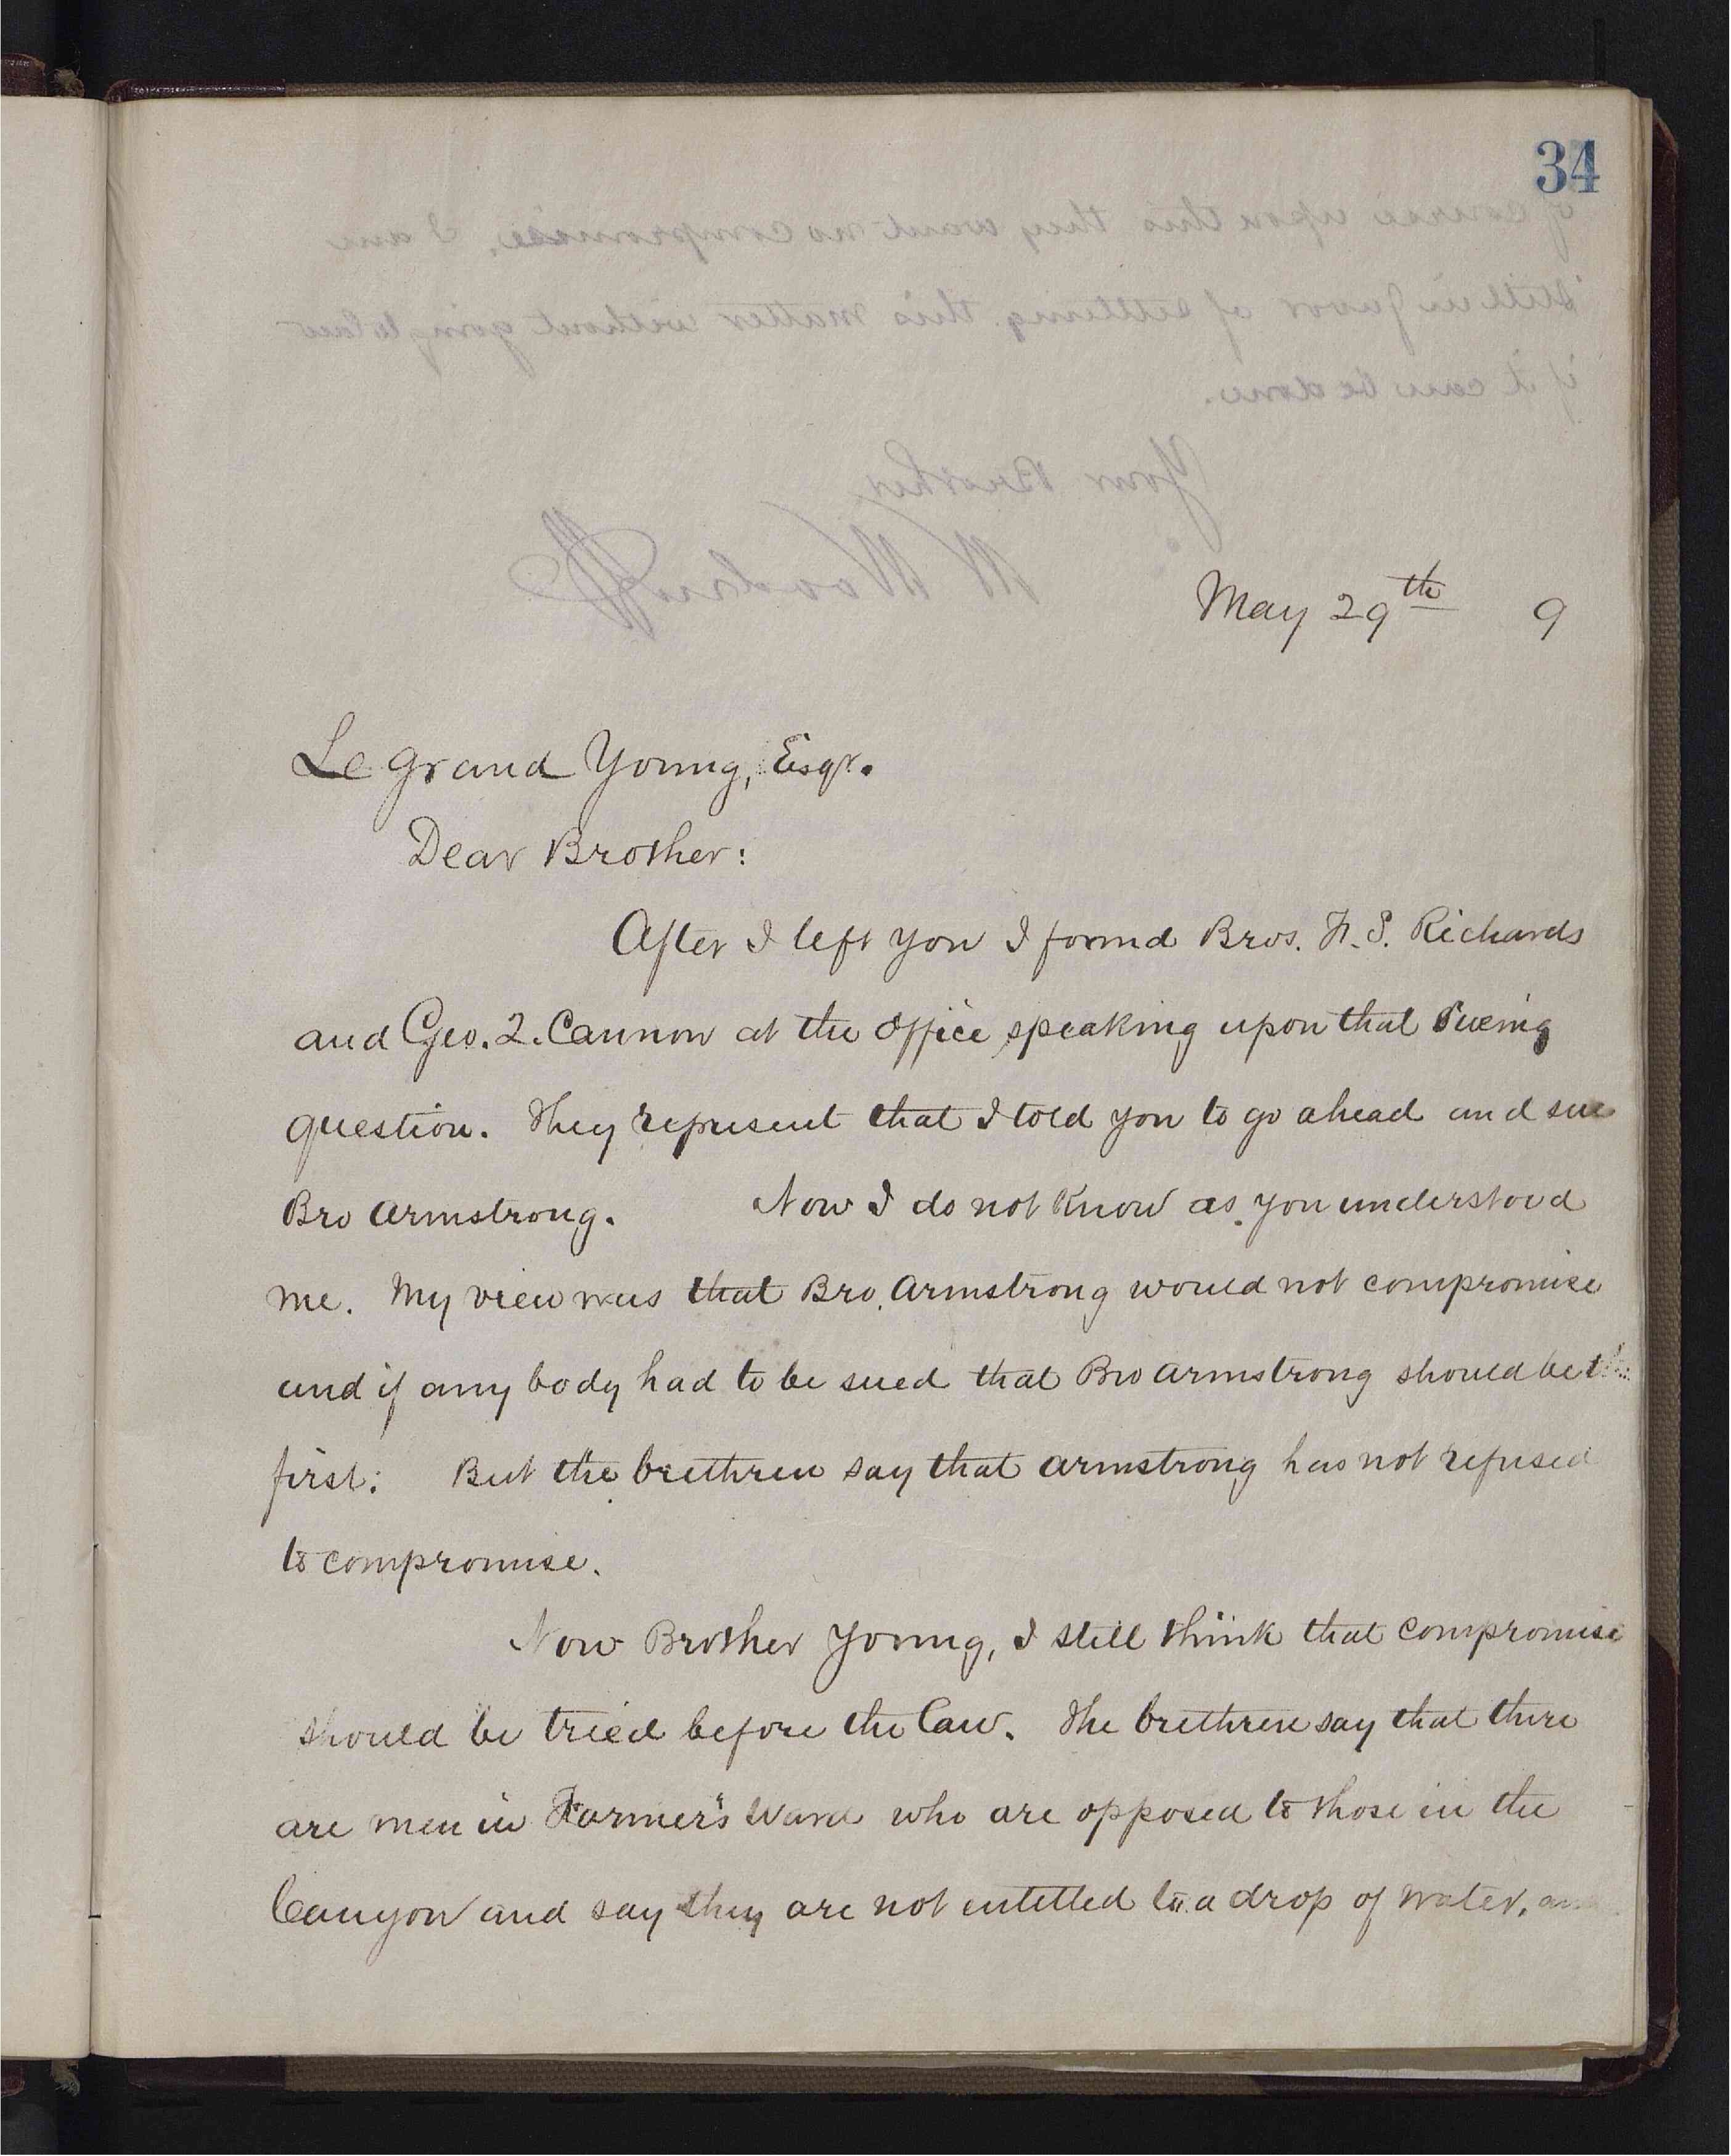 34
May 29th 9
Le Grand Young, Esqr.
Dear Brother:
After I left you I found Bros. F. S. Richards
and Geo. Q. Cannon at the office speaking upon that sueing
question. They represent that I told you to go ahead and sue
Bro Armstrong. Now I do not know as you understood
me. My view was that Bro. Armstrong would not compromise
and if any body had to be sued that Bro Armstrong should be the
first: But the brethren say that Armstrong has not refused
to compromise.
Now Brother Young, I still think that compromise
should be tried before the law. The brethren say that there
are men in Farmer's Ward who are opposed to those in the
Canyon and say they are not entitled to a drop of water, and
of course upon this they want no compromise. I am
still in favor of settling this matter without going to law
if it can be done.
Your Brother
W Woodruff